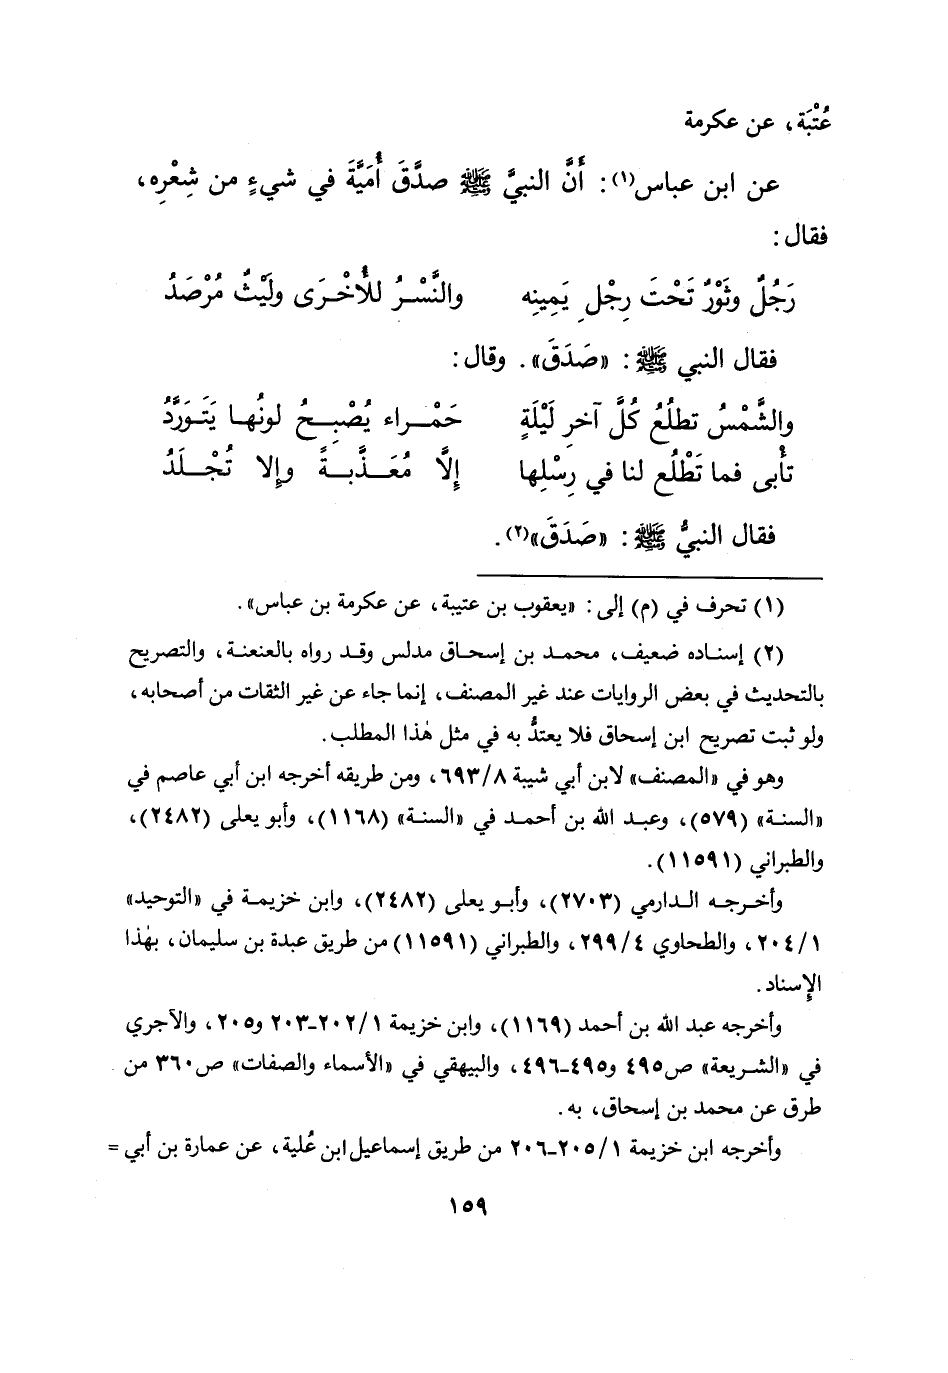 عُتْبَة، عن عكرمة
عن ابن عباس(١): أَنَّ النبيَّ ﷺ صدَّقَ أُمَيَّةَ في شيءٍ من شِعْرِه،
فقال:
رَجُلٌ وثَوْرٌ تَحْتَ رِجْلِ يَمِينِه والنَّسْرُ للأُخْرَى ولَيْثٌ مُرْصَدُ
فقال النبي ﷺ: «صَدَقَ». وقال:
والشَّمْسُ تطلُعُ كُلَّ آخرِ لَيْلَةٍ حَمْراء يُصْبِحُ لونُها يَتَورَّدُ
تأْبى فما تَطْلُع لنا في رِسْلِها إِلَّا مُعَذَّبةً وإلا تُجْلَدُ
فقال النبيُّ ﷺ: «صَدَقَ»(٢).
(١) تحرف في (م) إلى: «يعقوب بن عتيبة، عن عكرمة بن عباس».
(٢) إسناده ضعيف، محمد بن إسحاق مدلس وقد رواه بالعنعنة، والتصريح
بالتحديث في بعض الروايات عند غير المصنف، إنما جاء عن غير الثقات من أصحابه،
ولو ثبت تصريح ابن إسحاق فلا يعتدُّ به في مثل هٰذا المطلب.
وهو في «المصنف» لابن أبي شيبة ٦٩٣/٨، ومن طريقه أخرجه ابن أبي عاصم في
«السنة» (٥٧٩)، وعبد الله بن أحمد في «السنة» (١١٦٨)، وأبو يعلى (٢٤٨٢)،
والطبراني (١١٥٩١).
وأخرجه الدارمي (٢٧٠٣)، وأبو يعلى (٢٤٨٢)، وابن خزيمة في «التوحيد»
٢٠٤/١، والطحاوي ٢٩٩/٤، والطبراني (١١٥٩١) من طريق عبدة بن سليمان، بهٰذا
الإِسناد.
وأخرجه عبد الله بن أحمد (١١٦٩)، وابن خزيمة ٢٠٢/١-٢٠٣ و٢٠٥، والآجري
في «الشريعة» ص٤٩٥ و٤٩٥-٤٩٦، والبيهقي في «الأسماء والصفات» ص٣٦٠ من
طرق عن محمد بن إسحاق، به.
وأخرجه ابن خزيمة ٢٠٥/١-٢٠٦ من طريق إسماعيل ابن عُلية، عن عمارة بن أبي =
١٥٩